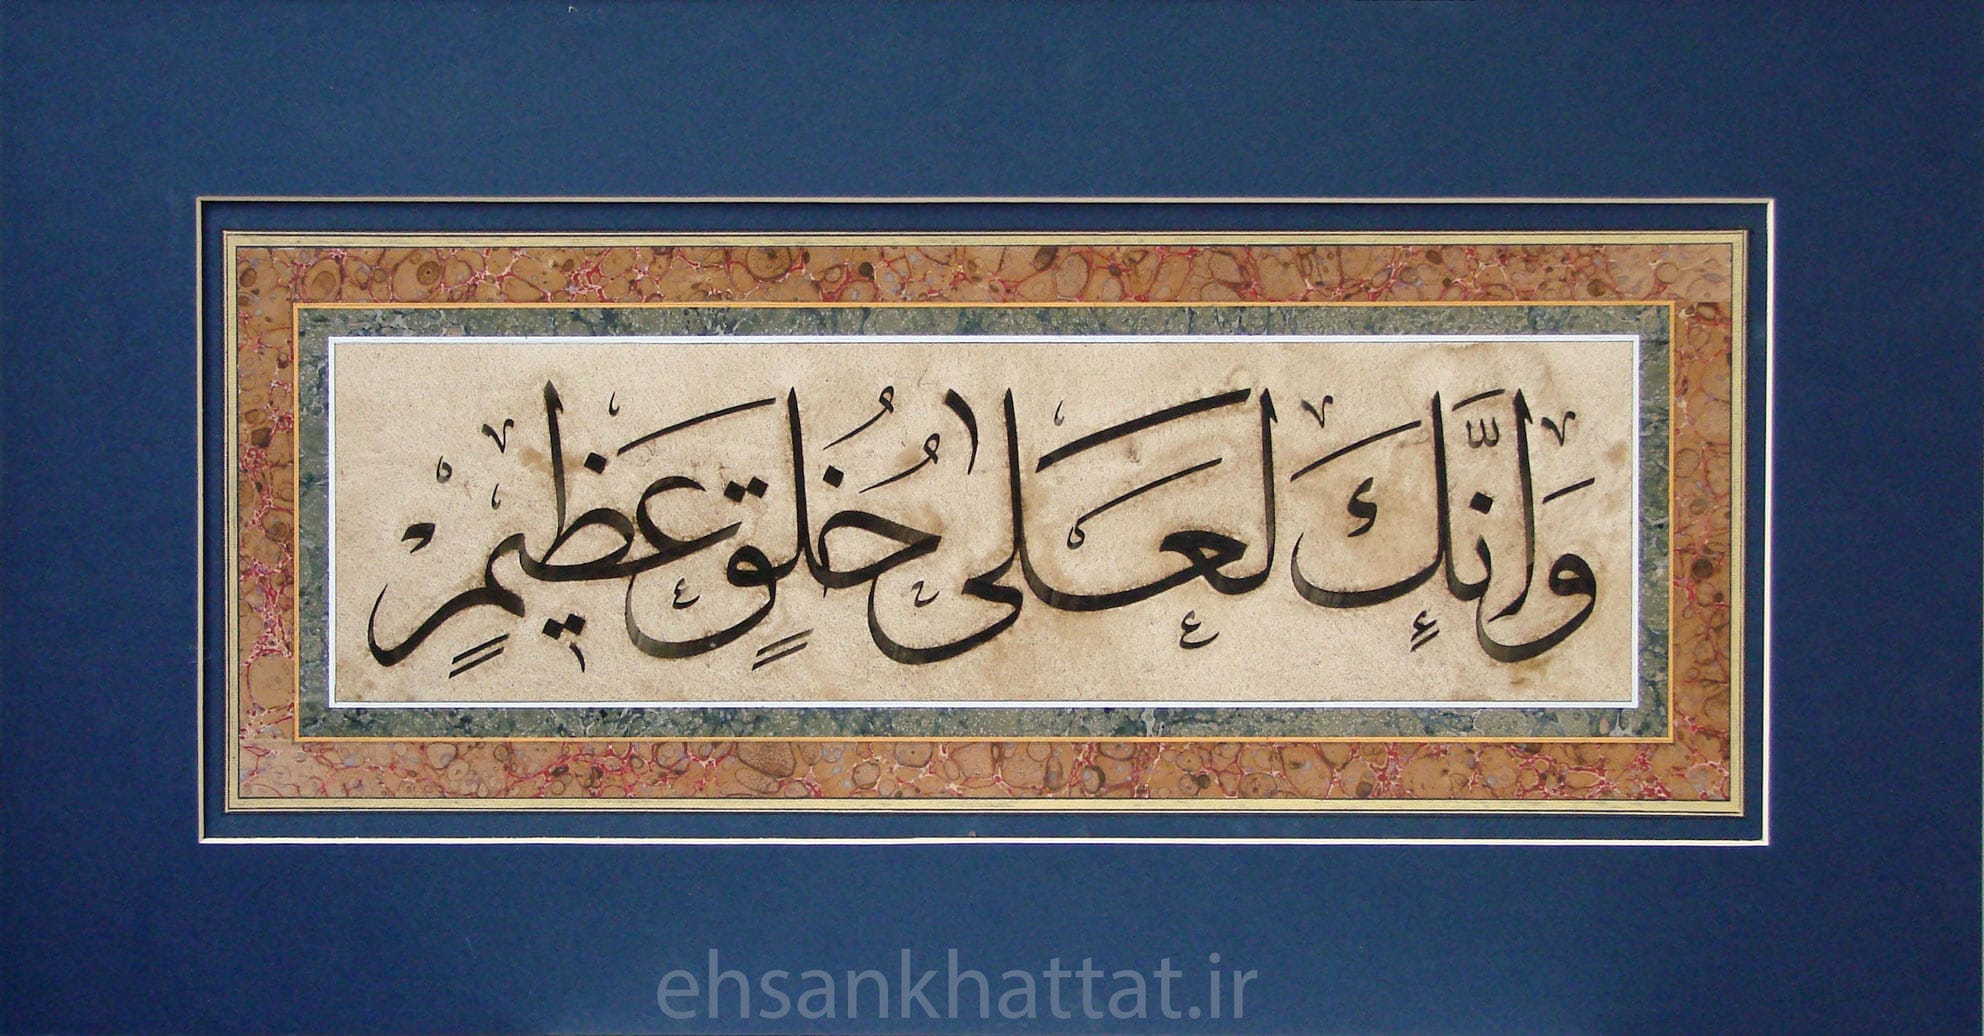 وَإِنَّكَ لَعَلَى خُلُقٍ عَظِيمٍ
ehsankhattat.ir